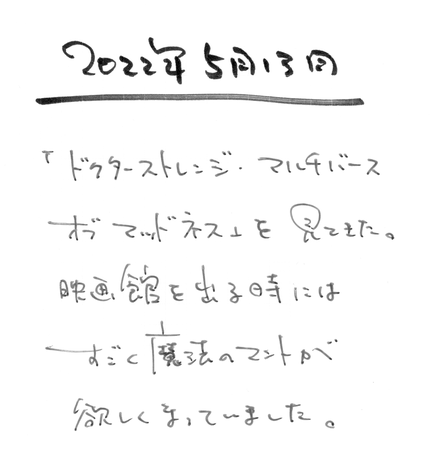 2022年5月13日
「ドクターストレンジ・マルチバース
オブマッドネス」を見てきた。
映画館を出る時には
すごく魔法のマントが
欲しくなっていました。